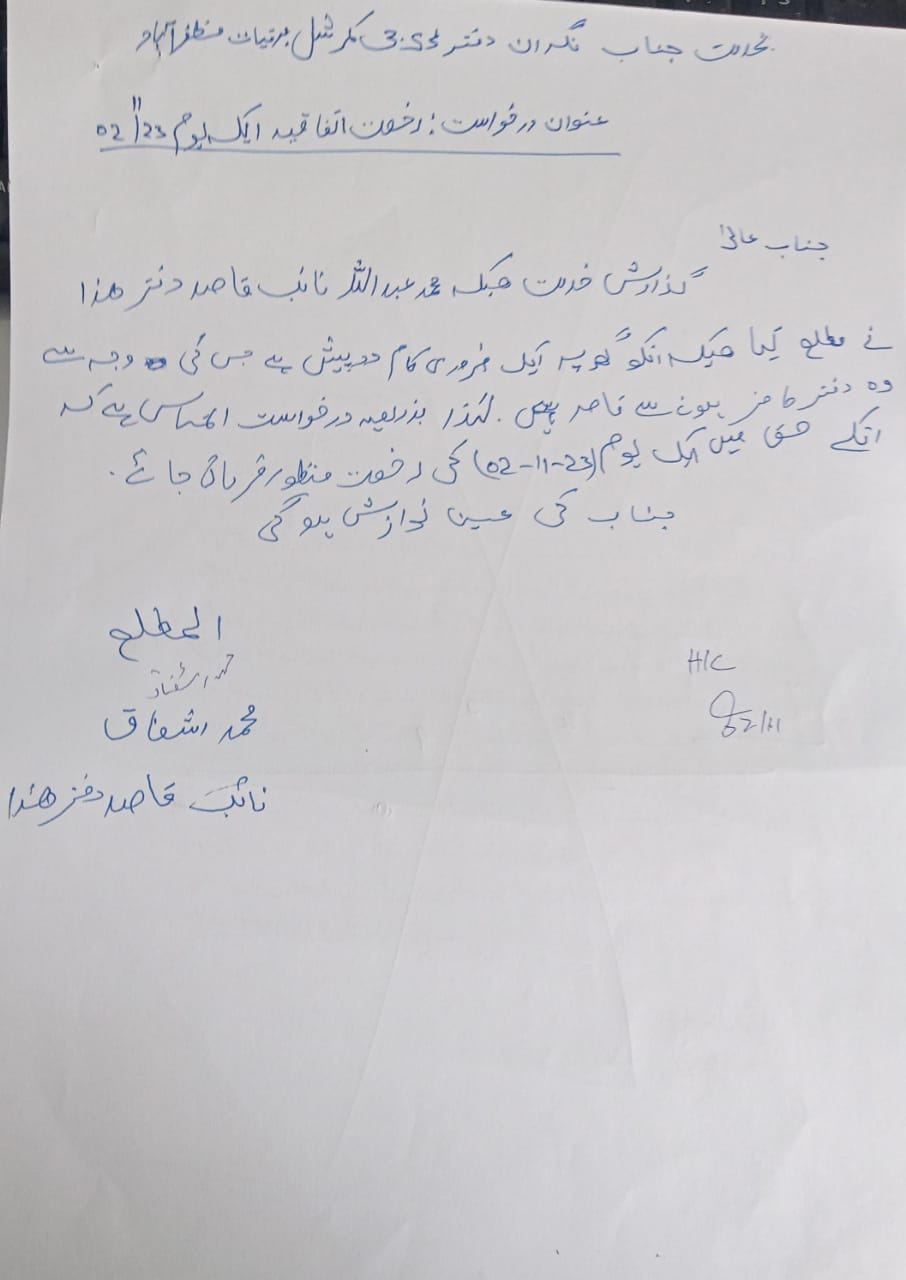 بخدمت جناب نگران دفتر ڈی جی کمرشل برقیات مظفرآباد
عنوان درخواست: رخصت اتفاقیہ ایک یوم 02/11/23
جناب عالیٰ
گذارش خدمت ھیکہ محمد عبداللہ نائب قاصد دفتر ھذا
نے مطلع کیا ھیکہ انکو گھر پہ ایک ضروری کام درپیش ہے جس کی وجہ سے
وہ دفتر حاضر ہونے سے قاصر ہیں. لہٰذا بذریعہ درخواست التماس ہے کہ
انکے حق میں ایک یوم (02-11-23) کی رخصت منظور فرمائی جائے.
جناب کی عین نوازش ہوگی
المطلع
محمد اشفاق
محمد اشفاق
نائب قاصد دفتر ھذا
H/C
02/11